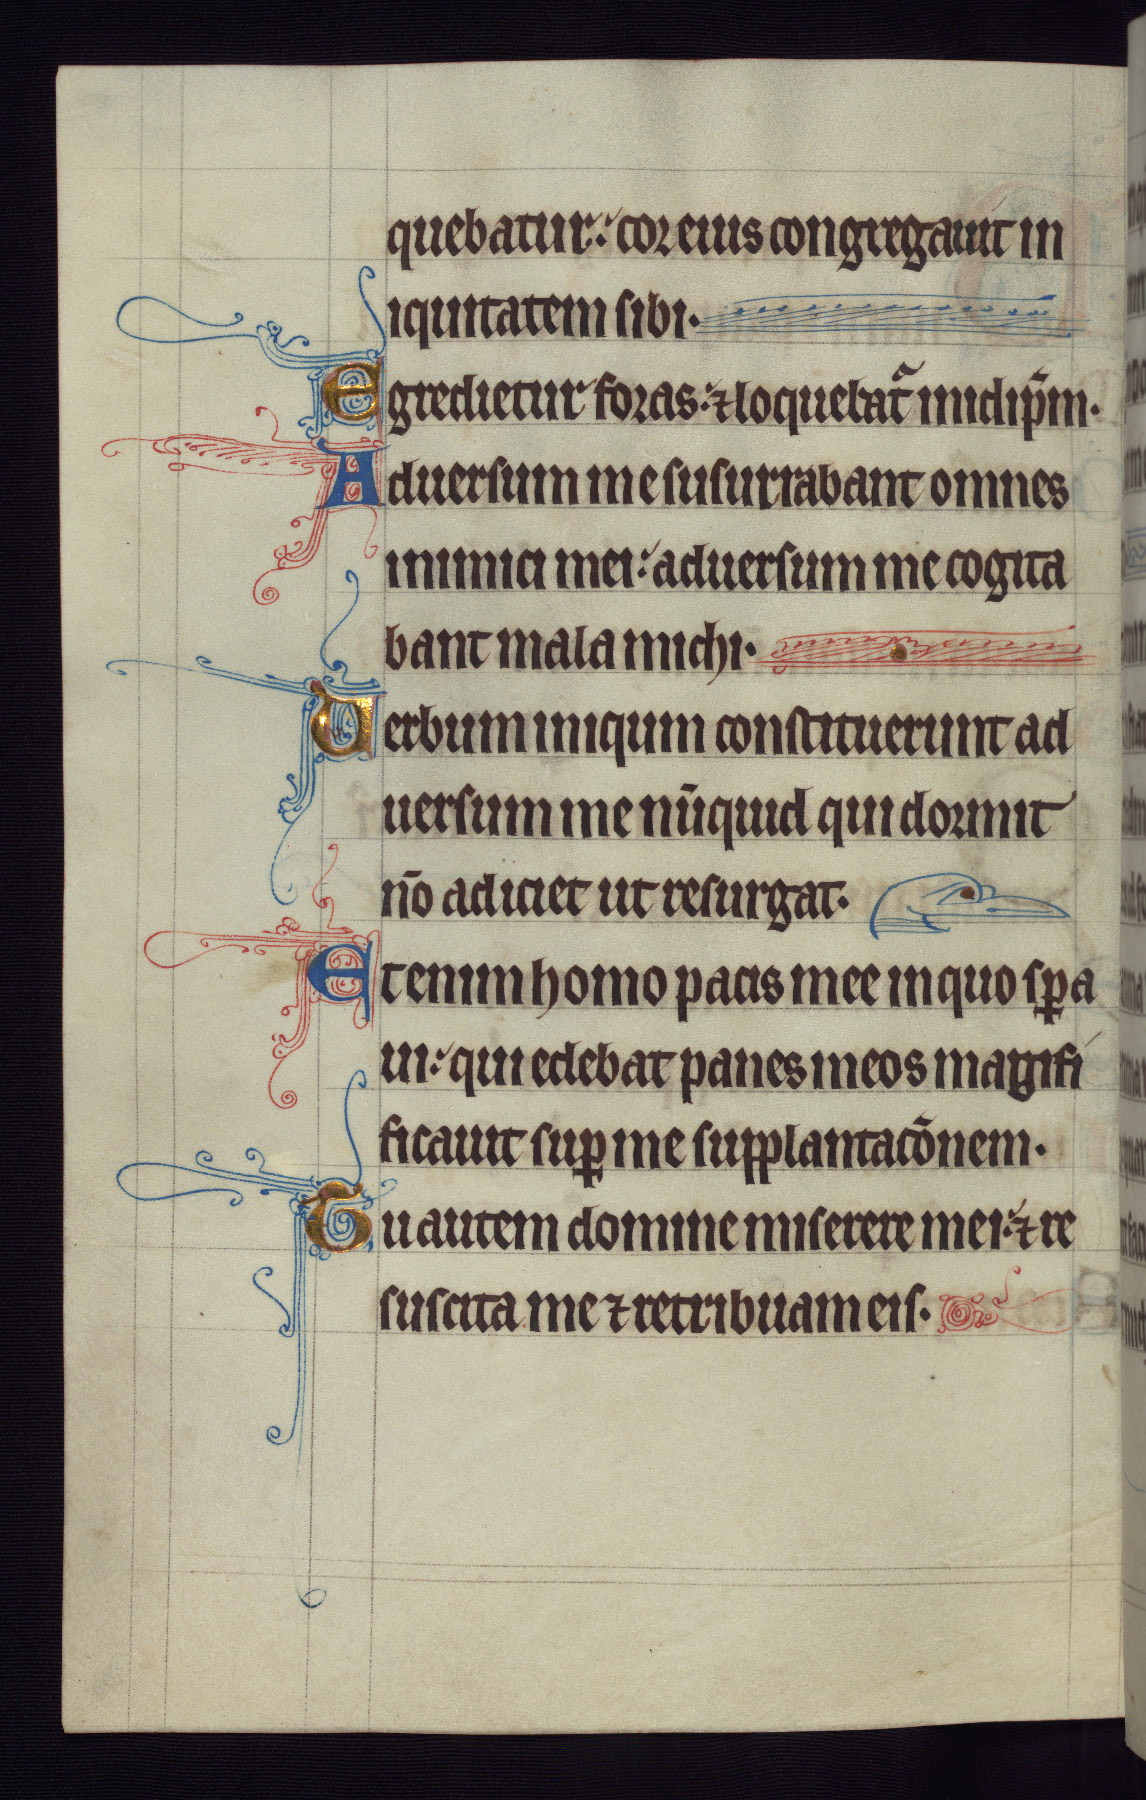 quebatur: cor eius congregauit in
iquitatem sibi.
Egredietur foras: ⁊ loquebat᷑ inidip̄m.
Aduersum me susurrabant omnes
inimici mei: aduersum me cogita
bant mala michi.
Uerbum iniqum constituerunt ad
uersum me nūquid qui dormit
nō adiciet ut resurgat.
Etenim homo pacis mee in quo sꝑa
ui: qui edebat panes meos magnifi
ficauit suꝑ me supplantacōnem.
Tu autem domine miserere mei: ⁊ re
suscita me ⁊ retribuam eis.